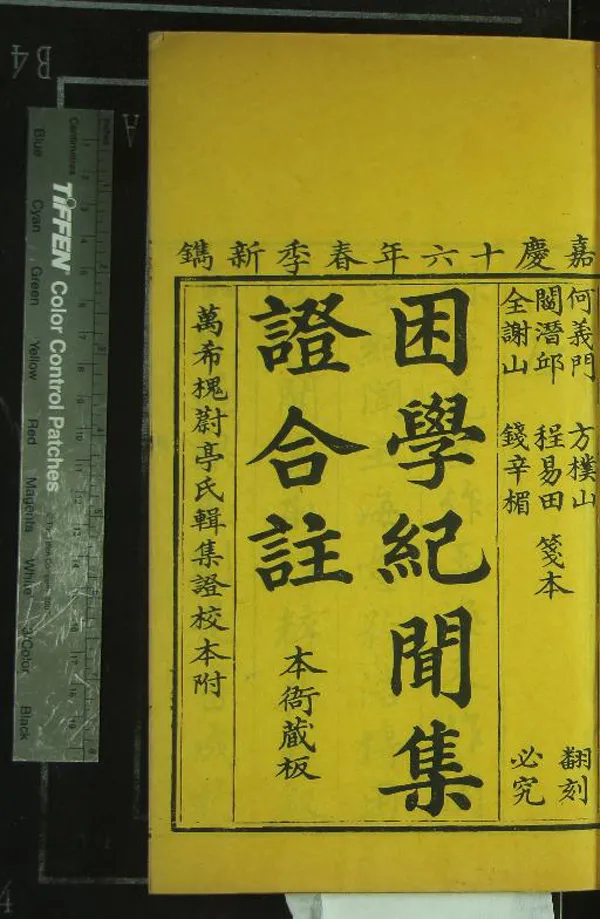 嘉慶十六年春季新鐫
何義門 方樸山
閻潛邱 程易田 箋本
全謝山 錢辛楣
翻刻
必究
困學紀聞集
證合註
本衙藏板
萬希槐蔚亭氏輯集證校本附
B4
A
TIFFEN Color Control Patches
Centimetres
Inches
Blue
Cyan
Green
Yellow
Red
Magenta
White
3/Color
Black